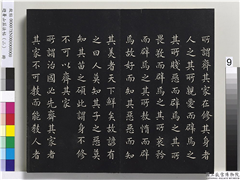 所謂齊其家在修其身者
人之其所親愛而辟焉之
其所賤惡而辟焉之其所
畏敬而辟焉之其所哀矜
而辟焉之其所敖惰而辟
焉故好而知其惡惡而知
其美者天下鮮矣故諺有
之曰人莫知其子之惡莫
知其苗之碩此謂身不修
不可以齊其家
所謂治國必先齊其家者
其家不可教而能教人者